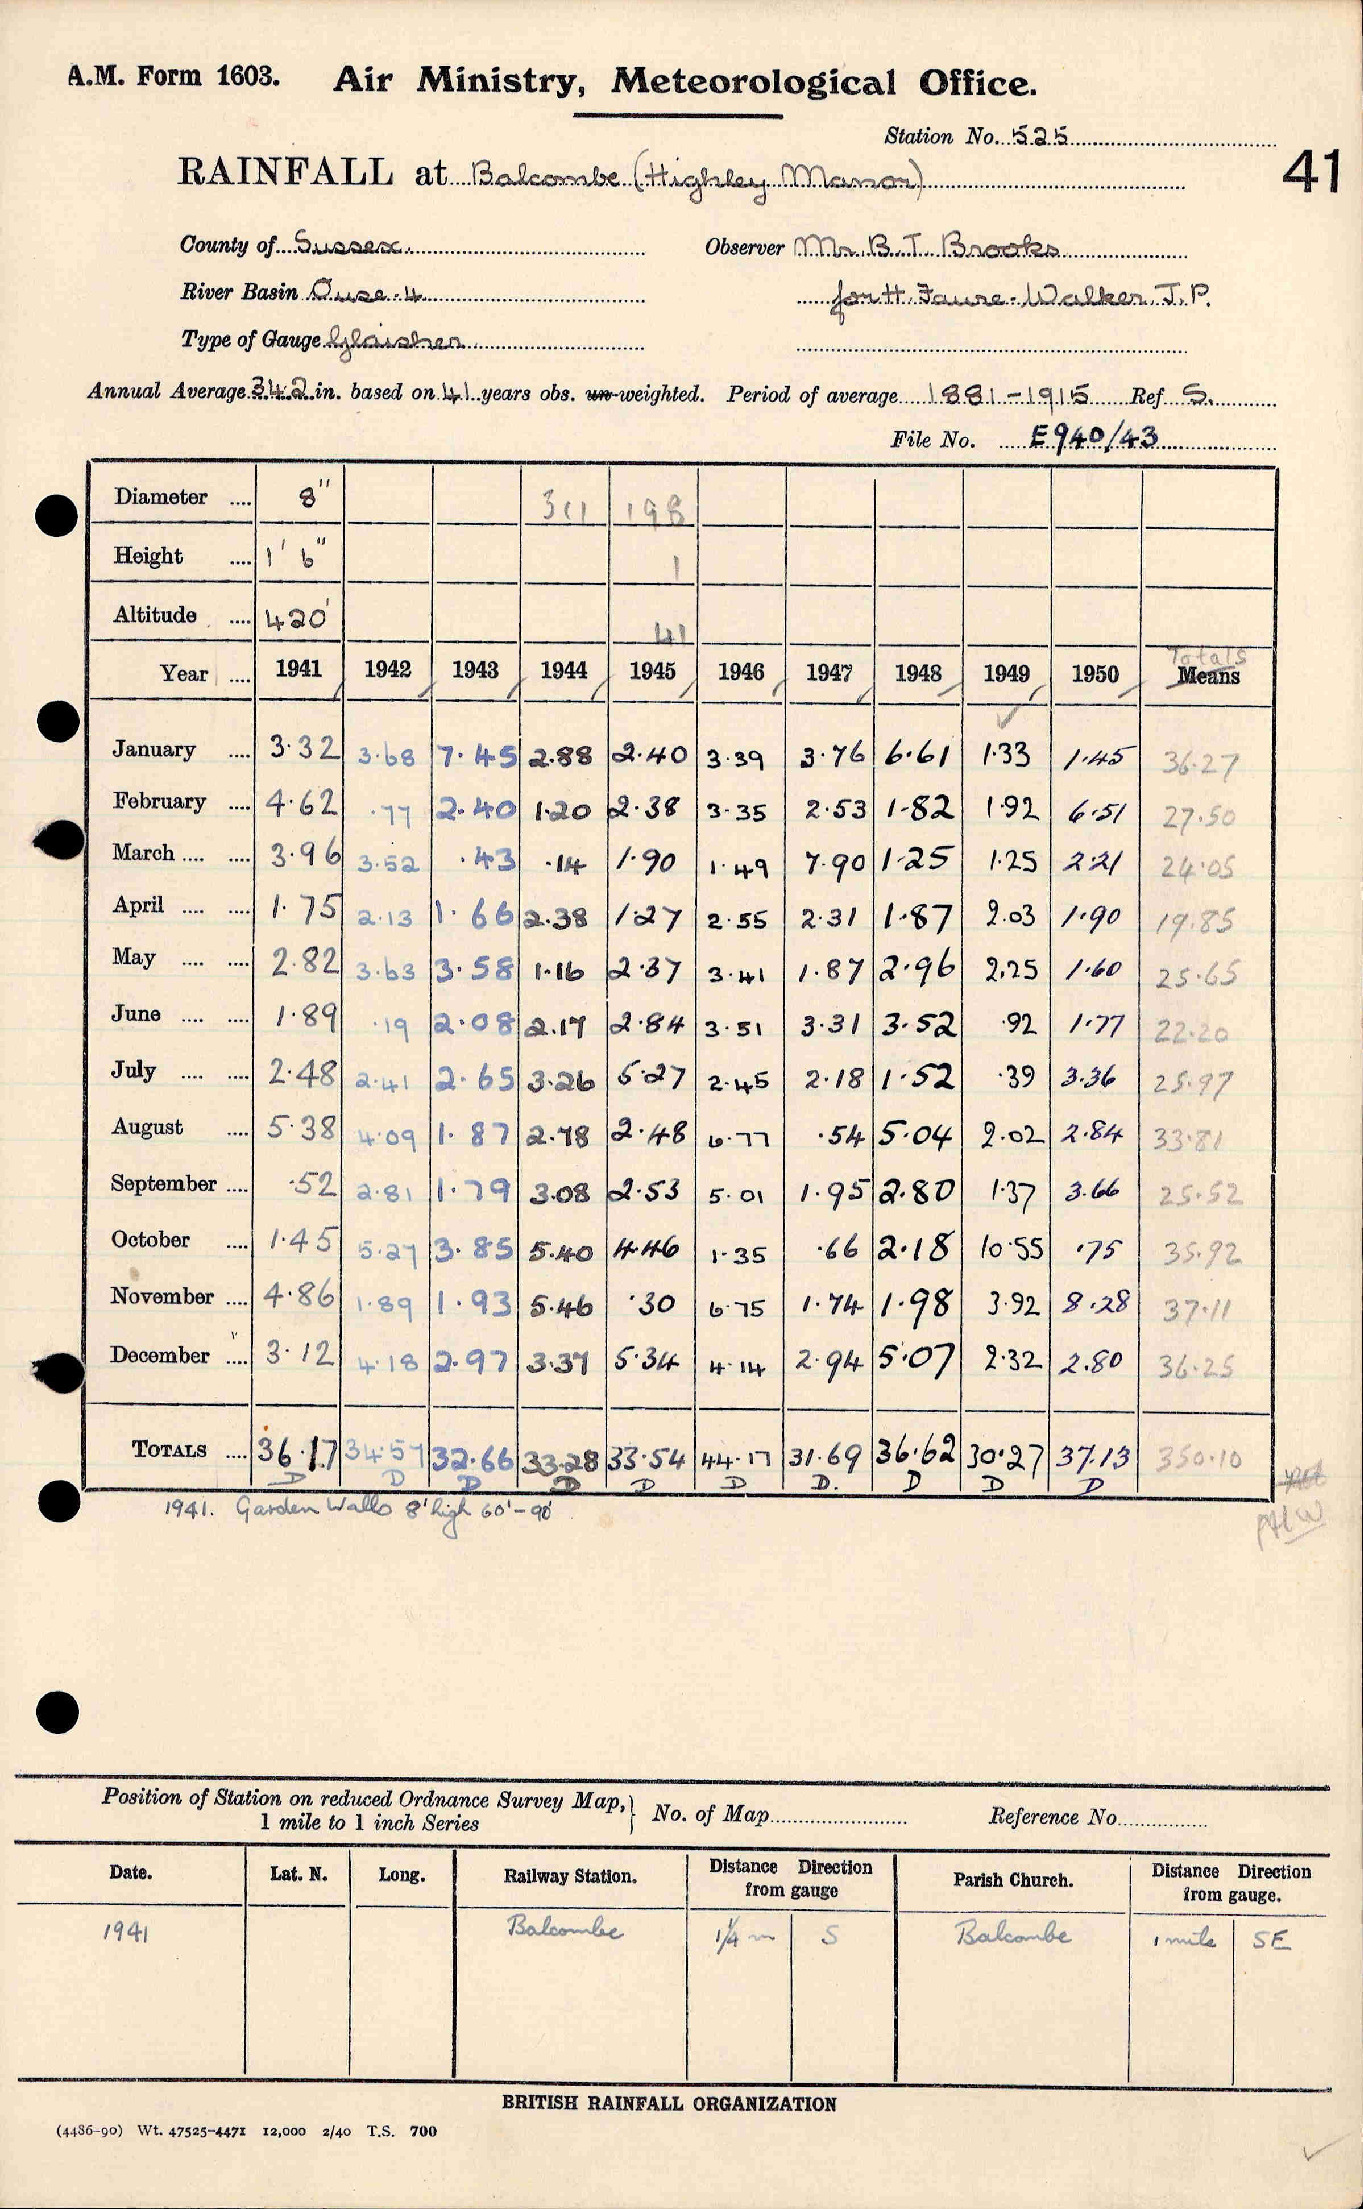 A.M. Form 1603. Air Ministry, Meteorological Office.
Station No. 525
RAINFALL at Balcombe (Highley Manor) 41
County of Sussex. Observer Mr. B. T. Brooks
River Basin Ouse. 4 for H. Faure-Walker J.P.
Type of Gauge Glaisher
Annual Average 34.2 in. based on 41 years obs. un-weighted. Period of average 1881-1915 Ref S.
File No. E940/43
Diameter .... 8" 311 198
Height .... 1' 6" 1
Altitude .... 420' 41
Year .... 1941 1942 1943 1944 1945 1946 1947 1948 1949 1950 Totals Means
January .... 3.32 3.68 7.45 2.88 2.40 3.39 3.76 6.61 1.33 1.45 36.27
February .... 4.62 .77 2.40 1.20 2.38 3.35 2.53 1.82 1.92 6.51 27.50
March .... .... 3.96 3.52 .43 .14 1.90 1.49 7.90 1.25 1.25 2.21 24.05
April .... .... 1.75 2.13 1.66 2.38 1.27 2.55 2.31 1.87 2.03 1.90 19.85
May .... .... 2.82 3.63 3.58 1.16 2.37 3.41 1.87 2.96 2.25 1.60 25.65
June .... .... 1.89 .19 2.08 2.17 2.84 3.51 3.31 3.52 .92 1.77 22.20
July .... .... 2.48 2.41 2.65 3.26 5.27 2.45 2.18 1.52 .39 3.36 25.97
August .... 5.38 4.09 1.87 2.78 2.48 6.77 .54 5.04 2.02 2.84 33.81
September .... .52 2.81 1.79 3.08 2.53 5.01 1.95 2.80 1.37 3.66 25.52
October .... 1.45 5.27 3.85 5.40 4.46 1.35 .66 2.18 10.55 .75 35.92
November .... 4.86 1.89 1.93 5.46 .30 6.75 1.74 1.98 3.92 8.28 37.11
December .... 3.12 4.18 2.97 3.37 5.34 4.14 2.94 5.07 2.32 2.80 36.25
TOTALS .... 36.17 34.57 32.66 33.28 33.54 44.17 31.69 36.62 30.27 37.13 350.10
D D D D D D D. D D D
1941. Garden Walls 8' high 60'-90'
Position of Station on reduced Ordnance Survey Map, 1 mile to 1 inch Series } No. of Map Reference No.
Date. Lat. N. Long. Railway Station. Distance Direction from gauge Parish Church. Distance Direction from gauge.
1941 Balcombe 1¼ m S Balcombe 1 mile SE
BRITISH RAINFALL ORGANIZATION
(4486-90) Wt. 47525-4471 12,000 2/40 T.S. 700